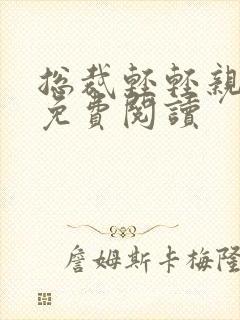 总裁轻轻親
免費閱讀
詹姆斯卡梅隆